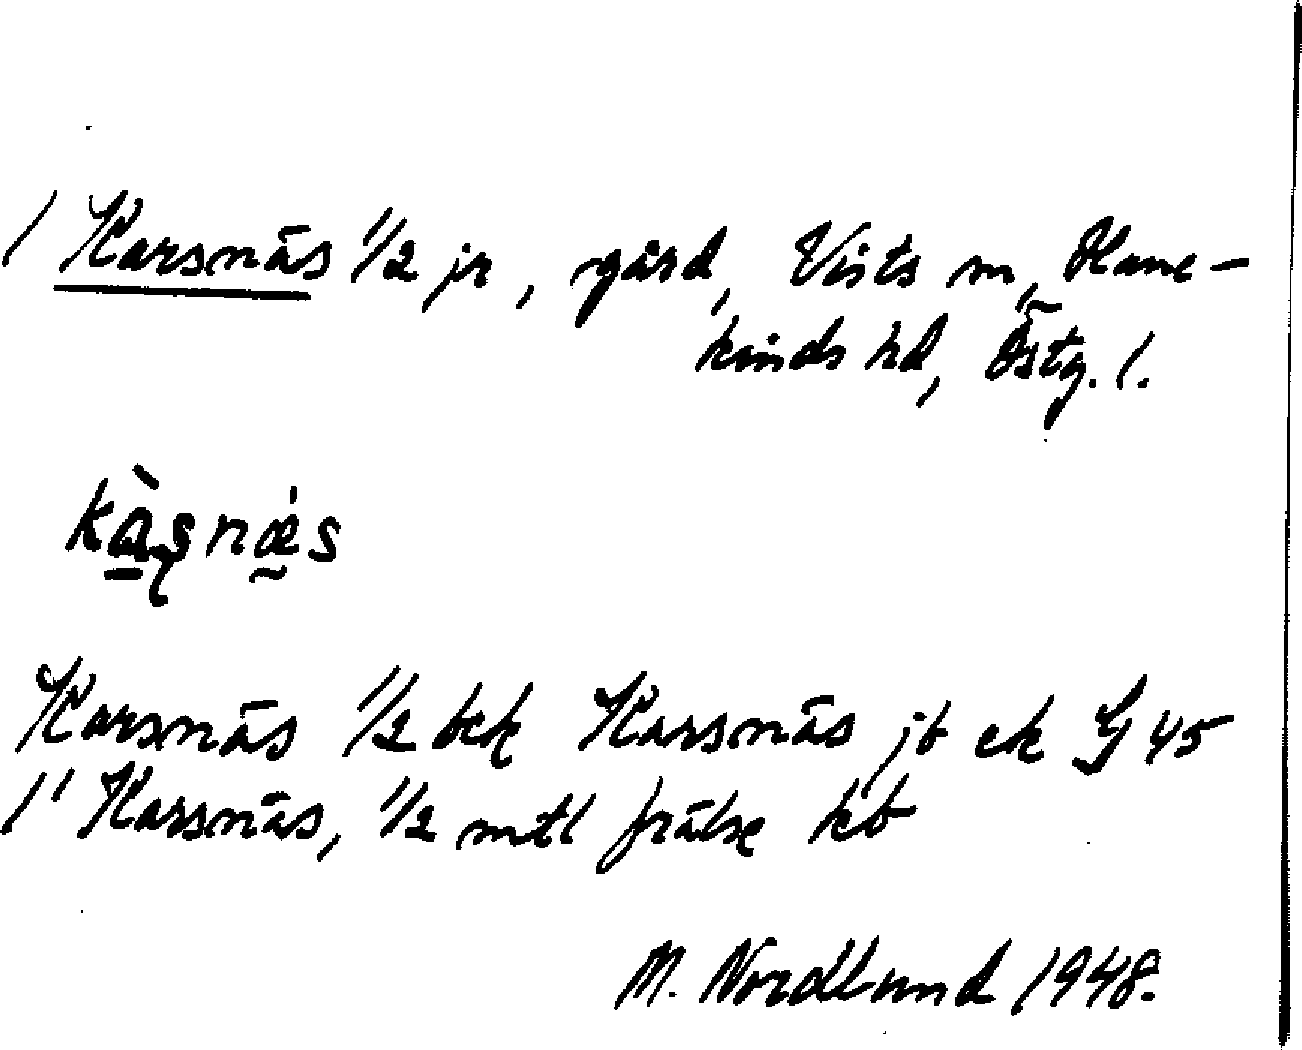 1 Karsnäs 1/2 jr, gård, Vists sn, Hane-
kinds hd, Östg. l.
kàs̩næ̀s
Karsnäs 1/2 bek Karsnäs jb ek G 45
1' Karsnäs, 1/2 mtl frälse kb
M. Nordlund 1948.